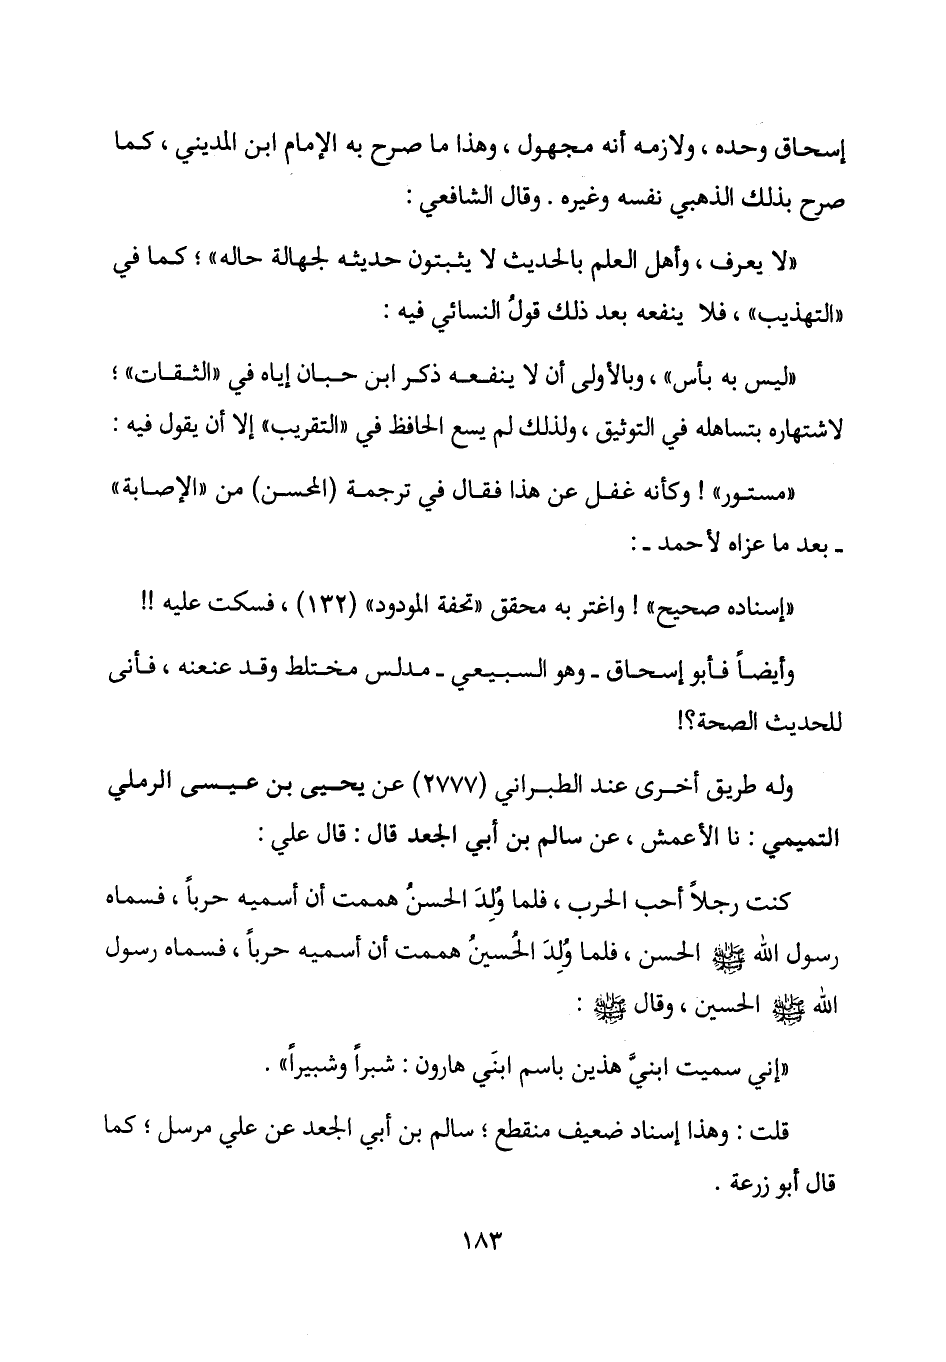 إسحاق وحده ، ولازمه أنه مجهول ، وهذا ما صرح به الإمام ابن المديني ، كما
صرح بذلك الذهبي نفسه وغيره . وقال الشافعي :
«لا يعرف ، وأهل العلم بالحديث لا يثبتون حديثه لجهالة حاله» ؛ كما في
«التهذيب» ، فلا ينفعه بعد ذلك قولُ النسائي فيه :
«ليس به بأس» ، وبالأولى أن لا ينفعه ذكر ابن حبان إياه في «الثقات» ؛
لاشتهاره بتساهله في التوثيق ، ولذلك لم يسع الحافظ في «التقريب» إلا أن يقول فيه :
«مستور» ! وكأنه غفل عن هذا فقال في ترجمة (المحسن) من «الإصابة»
ـ بعد ما عزاه لأحمد ـ :
«إسناده صحيح» ! واغتر به محقق «تحفة المودود» (١٣٢) ، فسكت عليه !!
وأيضاً فأبو إسحاق ـ وهو السبيعي ـ مدلس مختلط وقد عنعنه ، فأنى
للحديث الصحة؟!
وله طريق أخرى عند الطبراني (٢٧٧٧) عن يحيى بن عيسى الرملي
التميمي : نا الأعمش ، عن سالم بن أبي الجعد قال : قال علي :
كنت رجلاً أحب الحرب ، فلما وُلِدَ الحسنُ هممت أن أسميه حرباً ، فسماه
رسول الله ﷺ الحسن ، فلما وُلِدَ الحُسينُ هممت أن أسميه حرباً ، فسماه رسول
الله ﷺ الحسين ، وقال ﷺ :
«إني سميت ابنيَّ هذين باسم ابنَي هارون : شبراً وشبيراً» .
قلت : وهذا إسناد ضعيف منقطع ؛ سالم بن أبي الجعد عن علي مرسل ؛ كما
قال أبو زرعة .
١٨٣